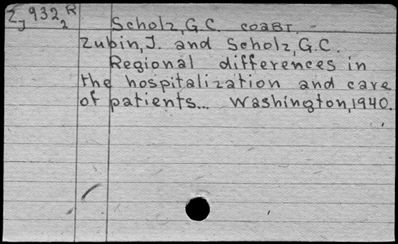 Z 932 R
J 2
Scholz, G.C. соавт.
Zubin, J. and Scholz, G.C.
Regional differences in
the hospitalization and care
of patients... Washington, 1940.